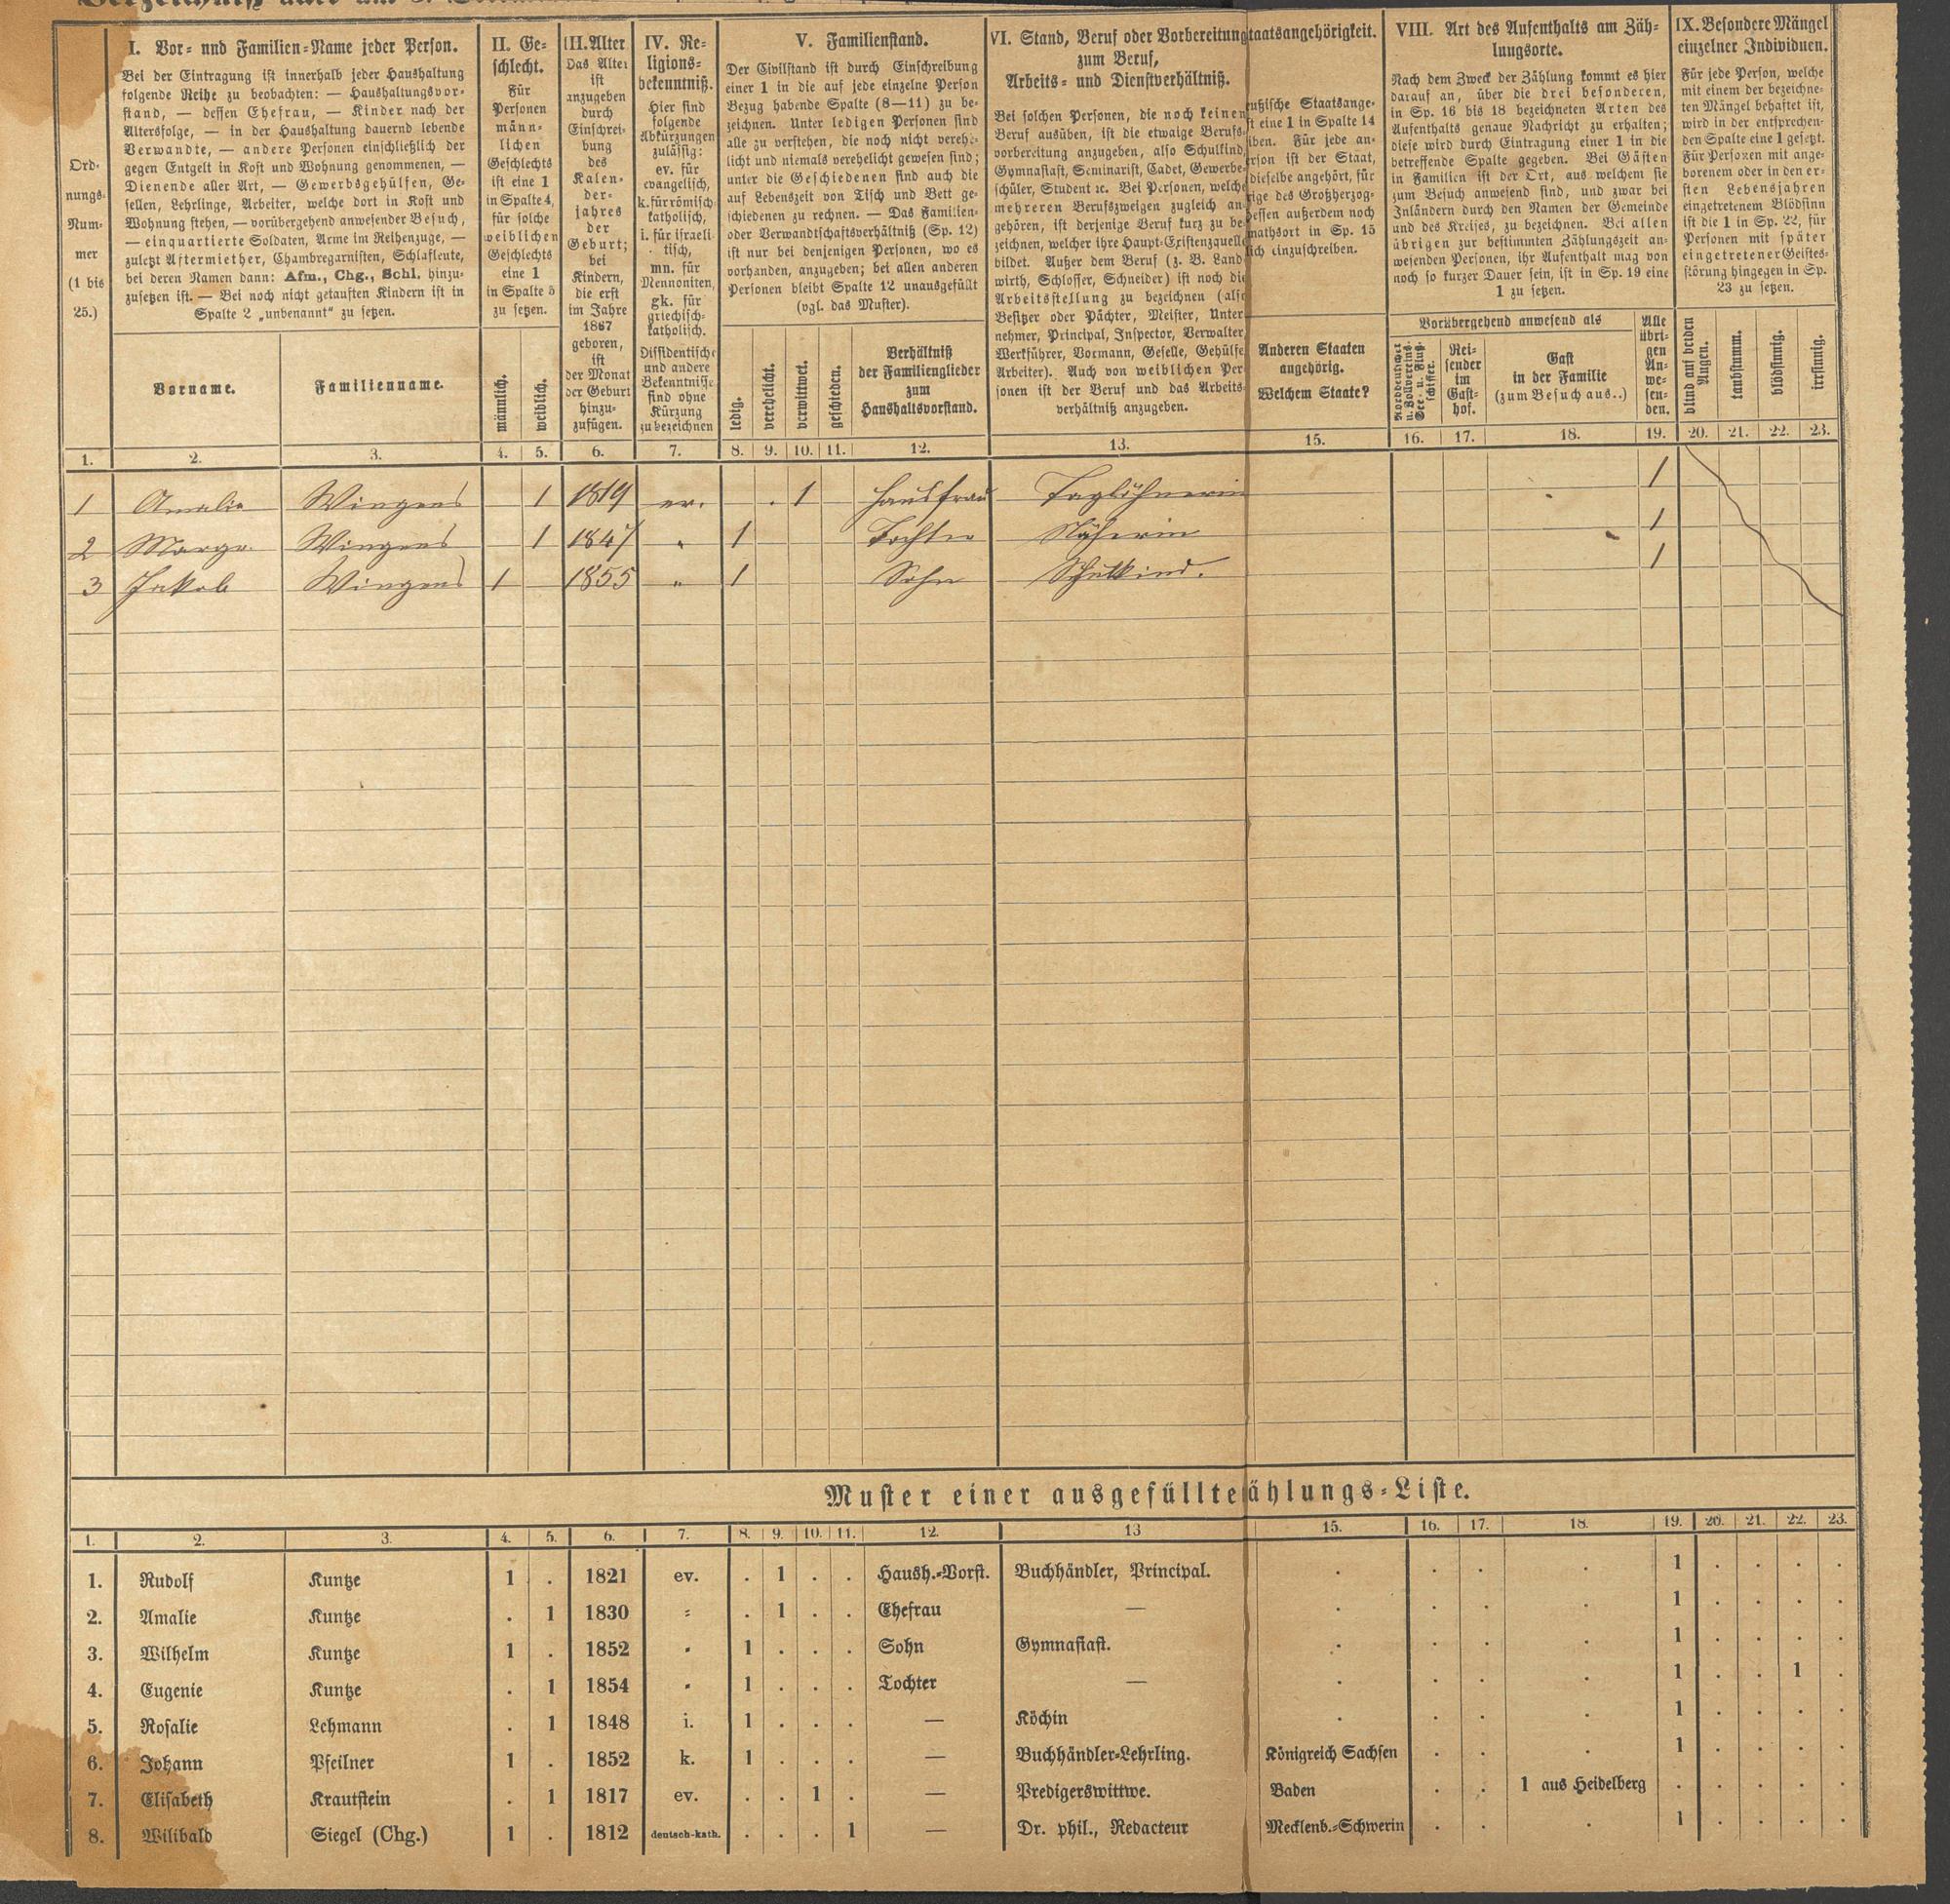 I. Vor- und Familien-Name jeder Person.
Bei der Eintragung ist innerhalb jeder Haushaltung
folgende Reihe zu beobachten: — Haushaltungsvor-
stand, — dessen Ehefrau, — Kinder nach der
Altersfolge, — in der Haushaltung dauernd lebende
Verwandte, — andere Personen einschließlich der
gegen Entgelt in Kost und Wohnung genommenen, —
Dienende aller Art, — Gewerbsgehülfen, Ge-
sellen, Lehrlinge, Arbeiter, welche dort in Kost und
Wohnung stehen, — vorübergehend anwesender Besuch,
— einquartierte Soldaten, Arme im Reihenzuge, —
zuletzt Aftermiether, Chambregarnisten, Schlafleute,
bei deren Namen dann: Afm., Chg., Schl. hinzu-
zusetzen ist. — Bei noch nicht getauften Kindern ist in
Spalte 2 „unbenannt“ zu setzen.
Ord-
nungs-
Num-
mer
(1 bis
25.)
Vorname.
Familienname.
II. Ge-
schlecht.
Für
Personen
männ-
lichen
Geschlechts
ist eine 1
in Spalte 4,
für solche
weiblichen
Geschlechts
eine 1
in Spalte 5
zu setzen.
männlich.
weiblich.
III. Alter
Das Alter
ist
anzugeben
durch
Einschrei-
bung
des
Kalen-
der-
jahres
der
Geburt;
bei
Kindern,
die erst
im Jahre
1867
geboren,
ist
der Monat
der Geburt
hinzu-
zufügen.
IV. Re-
ligions-
bekenntniß.
Hier sind
folgende
Abkürzungen
zulässig:
ev. für
evangelisch,
k. für römisch-
katholisch,
i. für israeli-
tisch,
mn. für
Mennoniten,
gk. für
griechisch-
katholisch.
Dissidentische
und andere
Bekenntnisse
sind ohne
Kürzung
zu bezeichnen
V. Familienstand.
Der Civilstand ist durch Einschreibung
einer 1 in die auf jede einzelne Person
Bezug habende Spalte (8—11) zu be-
zeichnen. Unter ledigen Personen sind
alle zu verstehen, die noch nicht verehe-
licht und niemals verehelicht gewesen sind;
unter die Geschiedenen sind auch die
auf Lebenszeit von Tisch und Bett ge-
schiedenen zu rechnen. — Das Familien-
oder Verwandtschaftsverhältniß (Sp. 12)
ist nur bei denjenigen Personen, wo es
vorhanden, anzugeben; bei allen anderen
Personen bleibt Spalte 12 unausgefüllt
(vgl. das Muster).
ledig.
verehelicht.
verwittwet.
geschieden.
Verhältniß
der Familienglieder
zum
Haushaltsvorstand.
VI. Stand, Beruf oder Vorbereitung
zum Beruf,
Arbeits- und Dienstverhältniß.
Bei solchen Personen, die noch keinen
Beruf ausüben, ist die etwaige Berufs-
vorbereitung anzugeben, also Schulkind,
Gymnasiast, Seminarist, Cadet, Gewerbe-
schüler, Student ꝛc. Bei Personen, welche
mehreren Berufszweigen zugleich an-
gehören, ist derjenige Beruf kurz zu be-
zeichnen, welcher ihre Haupt-Existenzquelle
bildet. Außer dem Beruf (z. B. Land-
wirth, Schlosser, Schneider) ist noch die
Arbeitsstellung zu bezeichnen (also
Besitzer oder Pächter, Meister, Unter-
nehmer, Principal, Inspector, Verwalter,
Werkführer, Vormann, Geselle, Gehülfe,
Arbeiter). Auch von weiblichen Per-
sonen ist der Beruf und das Arbeits-
verhältniß anzugeben.
taatsangehörigkeit.
eußische Staatsange-
st eine 1 in Spalte 14
iben. Für jede an-
rson ist der Staat,
dieselbe angehört, für
rige des Großherzog-
essen außerdem noch
mathsort in Sp. 15
lich einzuschreiben.
Anderen Staaten
angehörig.
Welchem Staate?
VIII. Art des Aufenthalts am Zäh-
lungsorte.
Nach dem Zweck der Zählung kommt es hier
darauf an, über die drei besonderen,
in Sp. 16 bis 18 bezeichneten Arten des
Aufenthalts genaue Nachricht zu erhalten;
diese wird durch Eintragung einer 1 in die
betreffende Spalte gegeben. Bei Gästen
in Familien ist der Ort, aus welchem sie
zum Besuch anwesend sind, und zwar bei
Inländern durch den Namen der Gemeinde
und des Kreises, zu bezeichnen. Bei allen
übrigen zur bestimmten Zählungszeit an-
wesenden Personen, ihr Aufenthalt mag von
noch so kurzer Dauer sein, ist in Sp. 19 eine
1 zu setzen.
Vorübergehend anwesend als
Norddeutscher
u. Zollvereins-
See- u. Fluß-
schiffer.
Rei-
sender
im
Gast-
hof.
Gast
in der Familie
(zum Besuch aus..)
Alle
übri-
gen
An-
we-
sen-
den.
IX. Besondere Mängel
einzelner Individuen.
Für jede Person, welche
mit einem der bezeichne-
ten Mängel behaftet ist,
wird in der entsprechen-
den Spalte eine 1 gesetzt.
Für Personen mit ange-
borenem oder in den er-
sten Lebensjahren
eingetretenem Blödsinn
ist die 1 in Sp. 22, für
Personen mit später
eingetretener Geistes-
störung hingegen in Sp.
23 zu setzen.
blind auf beiden
Augen.
taubstumm.
blödsinnig.
irrsinnig.
1. 2. 3. 4. 5. 6. 7. 8. 9. 10. 11. 12. 13. 15. 16. 17. 18. 19. 20. 21. 22. 23.
1 Amalie Wingens 1 1819 ev. 1 Hausfrau Taglöhnerin 1
2 Marga. Wingens 1 1847 " 1 Tochter Näherin 1
3 Jakob Wingens 1 1855 " 1 Sohn Schulkind. 1
Muster einer ausgefüllte ählungs-Liste.
1. 2. 3. 4. 5. 6. 7. 8. 9. 10. 11. 12. 13 15. 16. 17. 18. 19. 20. 21. 22. 23.
1. Rudolf Kuntze 1 . 1821 ev. . 1 . . Haush.-Vorst. Buchhändler, Principal. . . . . 1 . . . .
2. Amalie Kuntze . 1 1830 " . 1 . . Ehefrau — . . . . 1 . . . .
3. Wilhelm Kuntze 1 . 1852 " 1 . . . Sohn Gymnasiast. . . . . 1 . . . .
4. Eugenie Kuntze . 1 1854 " 1 . . . Tochter — . . . . 1 . . 1 .
5. Rosalie Lehmann . 1 1848 i. 1 . . . — Köchin . . . . 1 . . . .
6. Johann Pfeilner 1 . 1852 k. 1 . . . — Buchhändler-Lehrling. Königreich Sachsen . . . 1 . . . .
7. Elisabeth Krautstein . 1 1817 ev. . . 1 . — Predigerswittwe. Baden . . 1 aus Heidelberg . . . . .
8. Wilibald Siegel (Chg.) 1 . 1812 deutsch-kath. . . . 1 — Dr. phil., Redacteur Mecklenb.-Schwerin . . . 1 . . . .